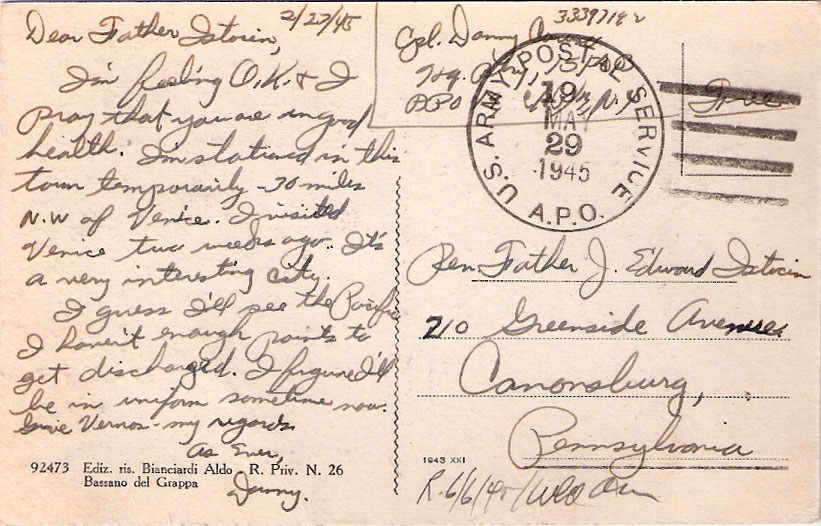 2/27/45
Dear Father Istocin,
I'm feeling O.K. & I
pray that you are in good
health. I'm stationed in this
town temporarily - 30 miles
N.W of Venice. I visited
Venice two weeks ago. It's
a very interesting city.
I guess I'll see the Pacific
I haven't enough points to
get discharged. I figure I'll
be in uniform sometime now.
Give Vernos - my regards
As Ever,
Danny.
92473 Ediz. ris. Bianciardi Aldo - R. Priv. N. 26
Bassano del Grappa
Cpl. Danny
Hq.
APO N.Y.
U.S. ARMY POSTAL SERVICE
19
MAY
29
1945
A.P.O.
Free
Rev. Father J. Edward Istocin
210 Greenside Avenue
Canonsburg,
Pennsylvania
1943 XXI
R. 6/6/45/